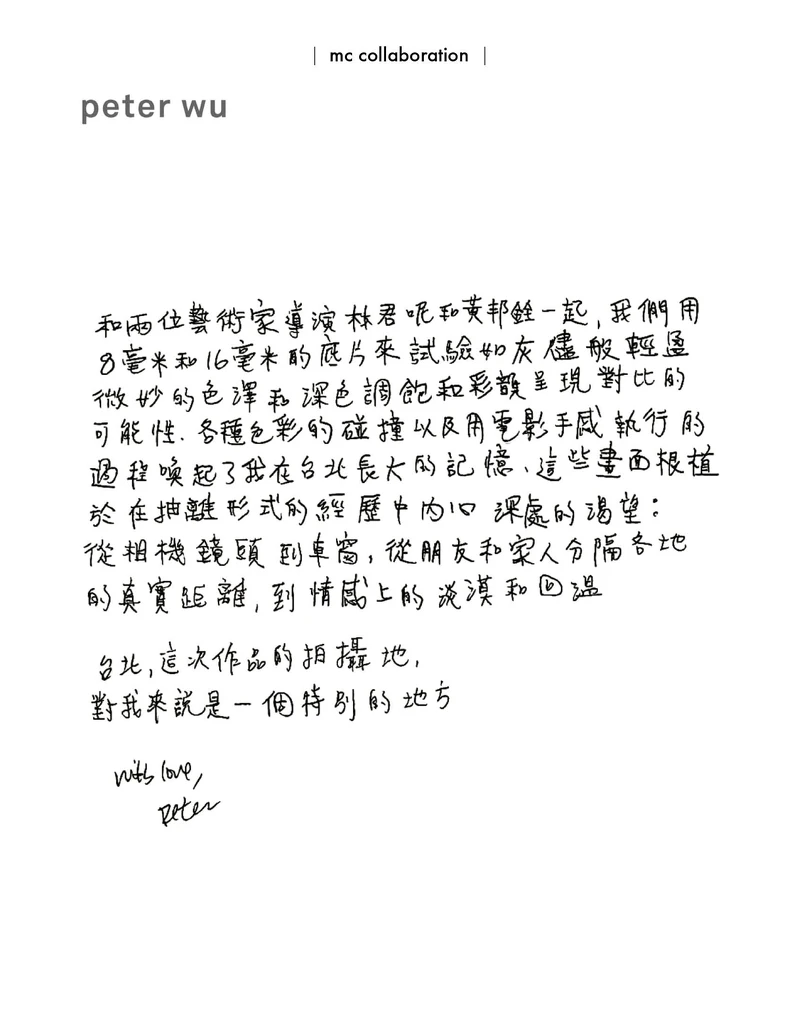 | mc collaboration |
peter wu
和兩位藝術家導演林君昵和黃邦銓一起, 我們用
8毫米和16毫米的底片來試驗如灰儘般輕盈
微妙的色澤和深色調飽和彩韻呈現對比的
可能性. 各種色彩的碰撞以及用電影手感執行的
過程喚起了我在台北長大的記憶、這些畫面根植
於在抽離形式的經歷中內心深處的渴望:
從相機鏡頭到車窗, 從朋友和家人分隔各地
的真實距離, 到情感上的淡漠和回溫
台北, 這次作品的拍攝地,
對我來說是一個特別的地方
with love,
Peter